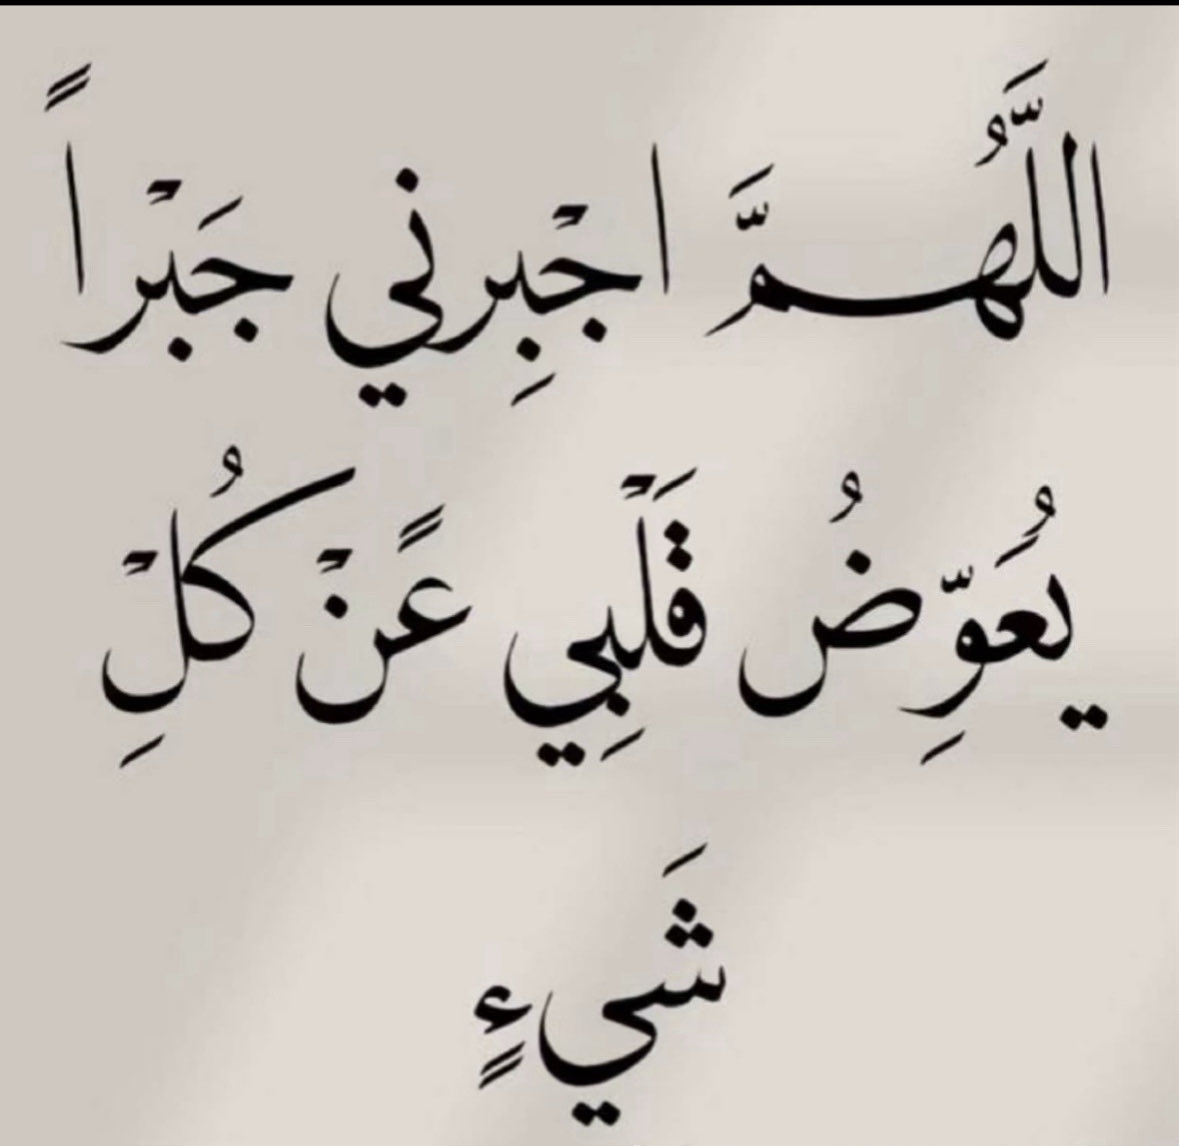 اللَّهُمَّ اجْبِرني جَبْراً
يُعَوِّضُ قَلْبِي عًنْ كُلْلِ
شَيءٍ